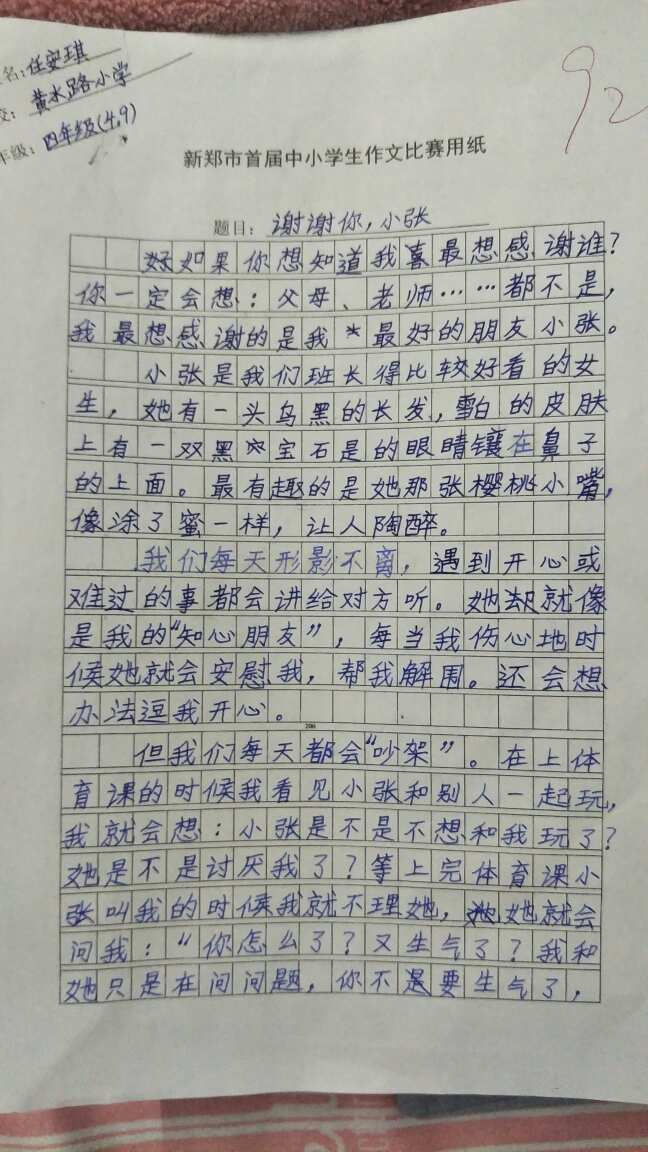 名：任安琪
校：黄水路小学
年级：四年级(4.9)
92
新郑市首届中小学生作文比赛用纸
题目：谢谢你，小张
如果你想知道我最想感谢谁？
你一定会想：父母、老师……都不是，
我最想感谢的是我最好的朋友小张。
小张是我们班长得比较好看的女
生，她有一头乌黑的长发，雪白的皮肤
上有一双黑宝石是的眼睛镶在鼻子
的上面。最有趣的是她那张樱桃小嘴，
像涂了蜜一样，让人陶醉。
我们每天形影不离，遇到开心或
难过的事都会讲给对方听。她就像
是我的“知心朋友”，每当我伤心地时
候她就会安慰我，帮我解围。还会想
办法逗我开心。
200
但我们每天都会“吵架”。在上体
育课的时候我看见小张和别人一起玩，
我就会想：小张是不是不想和我玩了？
她是不是讨厌我了？等上完体育课小
张叫我的时候我就不理她，她就会
问我：“你怎么了？又生气了？我和
她只是在问问题，你不要生气了，